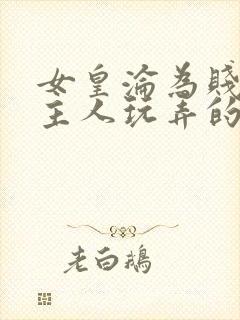 女皇淪為賤
主人玩弄的
老白鵝